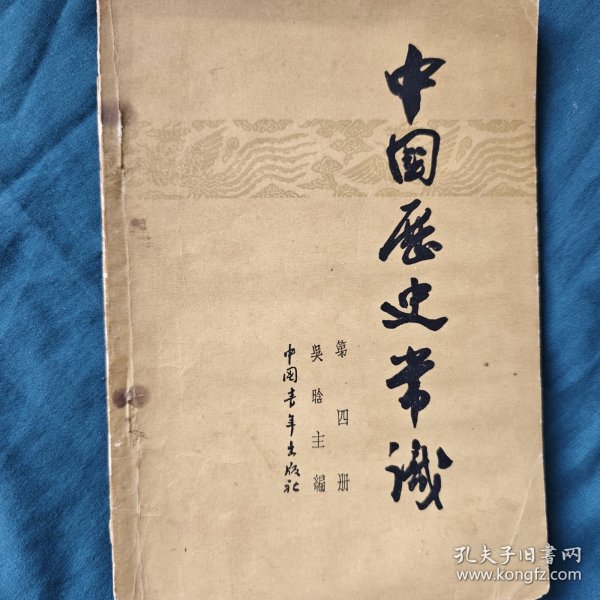 中国歷史常識
第四册
吳晗主編
中国青年出版社
孔夫子旧书网
www.kongfz.com